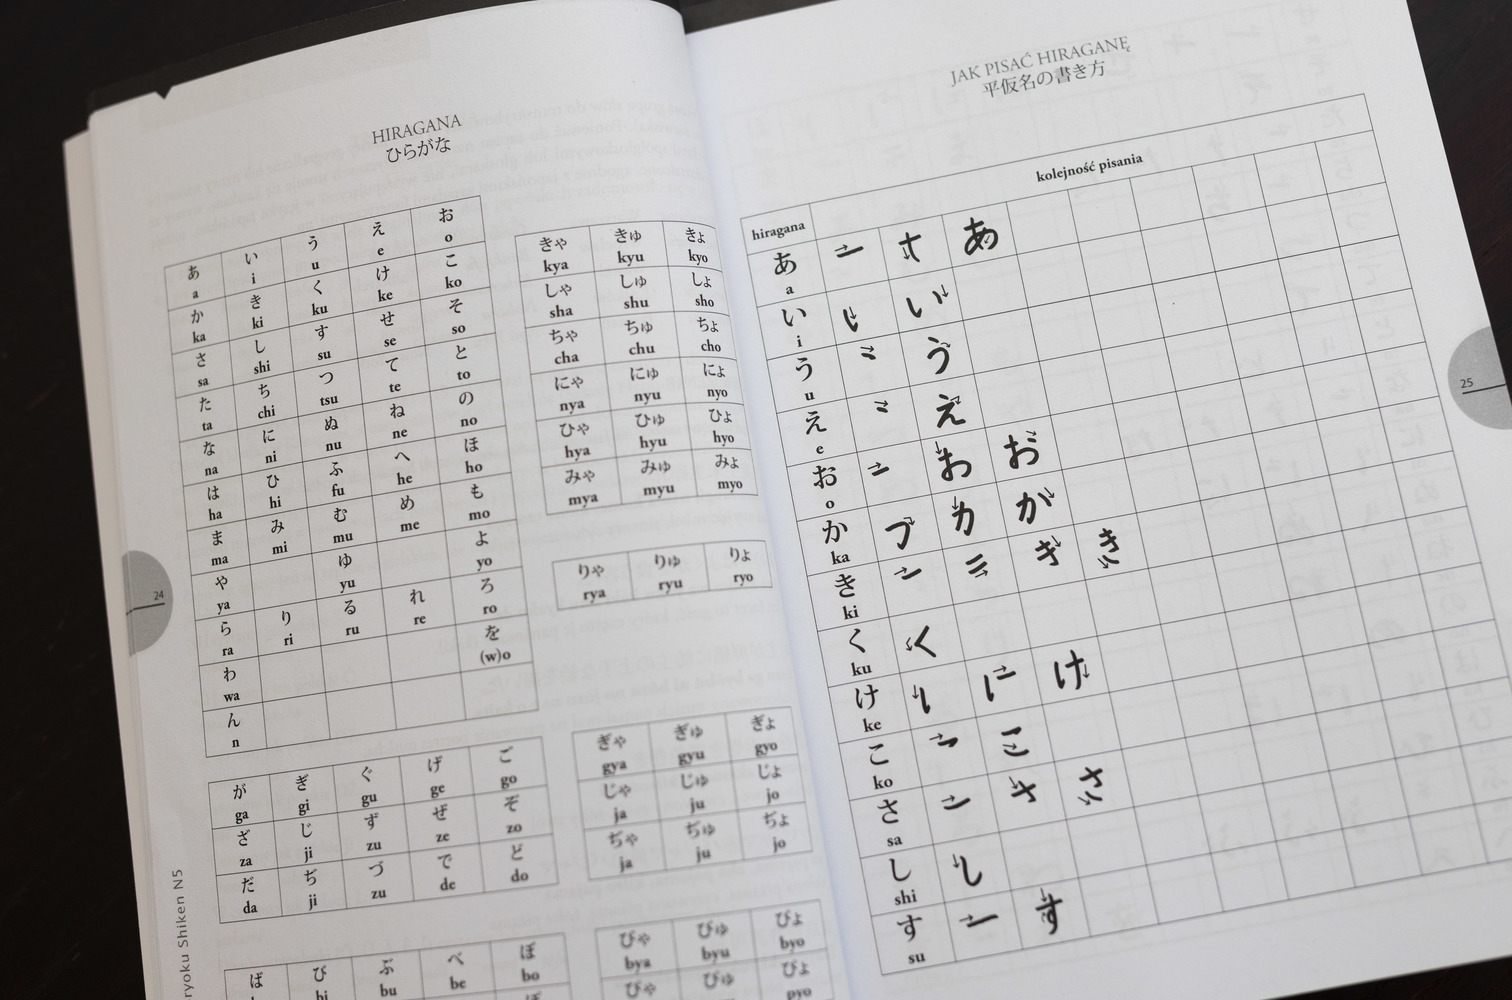 HIRAGANA
ひらがな
あ い う え お
a i u e o
か き く け こ
ka ki ku ke ko
さ し す せ そ
sa shi su se so
た ち つ て と
ta chi tsu te to
な に ぬ ね の
na ni nu ne no
は ひ ふ へ ほ
ha hi fu he ho
ま み む め も
ma mi mu me mo
や ゆ よ
ya yu yo
ら り る れ ろ
ra ri ru re ro
わ を
wa (w)o
ん
n
が ぎ ぐ げ ご
ga gi gu ge go
ざ じ ず ぜ ぞ
za ji zu ze zo
だ ぢ づ で ど
da ji zu de do
ば び ぶ べ ぼ
bi bu be bo
きゃ きゅ きょ
kya kyu kyo
しゃ しゅ しょ
sha shu sho
ちゃ ちゅ ちょ
cha chu cho
にゃ にゅ にょ
nya nyu nyo
ひゃ ひゅ ひょ
hya hyu hyo
みゃ みゅ みょ
mya myu myo
りゃ りゅ りょ
rya ryu ryo
ぎゃ ぎゅ ぎょ
gya gyu gyo
じゃ じゅ じょ
ja ju jo
ぢゃ ぢゅ ぢょ
ja ju jo
びゃ びゅ びょ
bya byu byo
ぴゃ ぴゅ ぴょ
pyo
24
ryoku Shiken N5
JAK PISAĆ HIRAGANĘ
平仮名の書き方
hiragana kolejność pisania
あ あ
a
い い
i
う う
u
え え
e
お お
o
か か
ka
き き
ki
く く
ku
け け
ke
こ こ
ko
さ さ
sa
し し
shi
す す
su
25